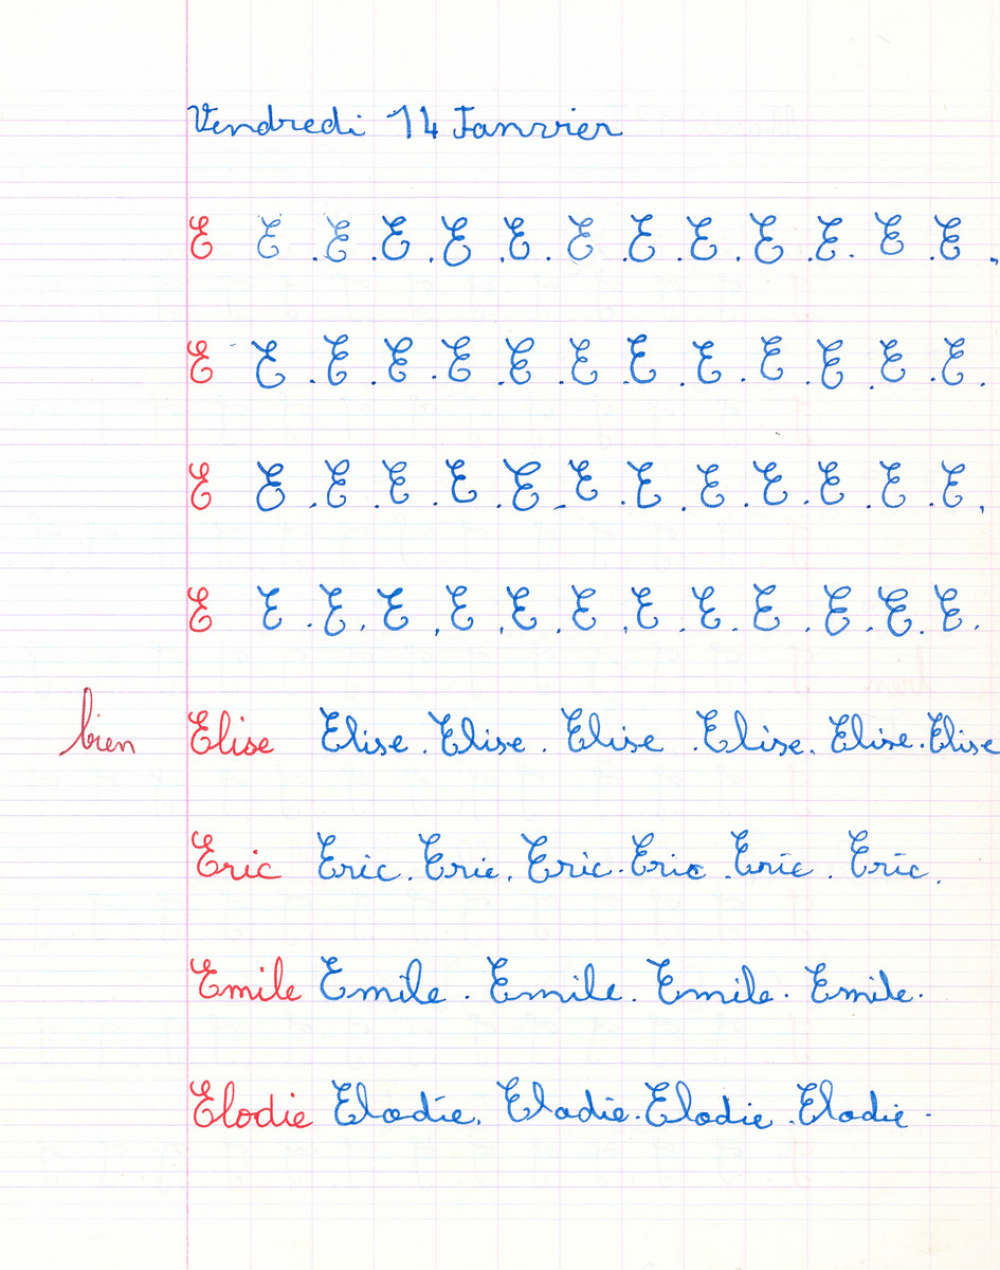 Vendredi 14 Janvier
E E . E . E . E . E . E . E . E . E . E . E . E .
E E . E . E . E . E . E . E . E . E . E . E . E .
E E . E . E . E . E . E . E . E . E . E . E . E .
E E . E . E . E . E . E . E . E . E . E . E . E .
bien Elise Elise . Elise . Elise . Elise . Elise . Elise
Eric Eric . Eric . Eric . Eric . Eric . Eric .
Emile Emile . Emile . Emile . Emile .
Elodie Elodie . Elodie . Elodie . Elodie .